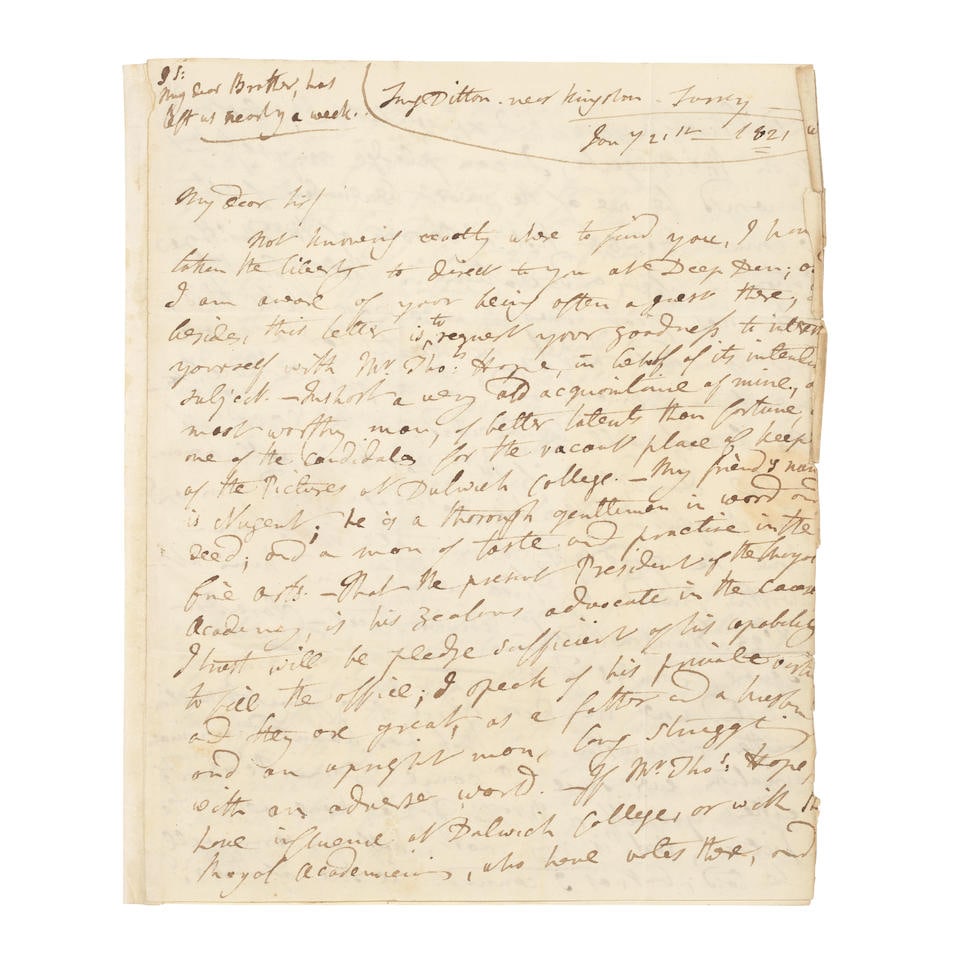 PS:
My dear Brother, has
left us nearly a week.
Long Ditton. near Kingston - Surry
Jany 21st 1821
My dear Sir/
Not knowing exactly where to find you, I have
taken the liberty to direct to you at Deep Den; as
I am aware of your being often a guest there,
besides, this letter is to request your goodness to interest
yourself with Mr. Thos. Hope, in behalf of its intended
subject. - In short a very old acquaintance of mine, a
most worthy man, of better talents than fortune,
one of the Candidates for the vacant place of keep
of the Pictures at Dulwich College. - My friend's name
is Nugent; he is a thorough gentleman in word and
deed; and a man of taste and practise in the
fine arts. - That the present President of the Royal
Academy, is his zealous advocate in the cause
I trust will be pledge sufficient of his capability
to fill the office; I speak of his private virtues
and they are great, as a father and a husband
and an upright man, long struggling
with an adverse world. - If Mr. Thos. Hope,
have influence at Dulwich College, or with the
Royal Academicians, who have votes there, and